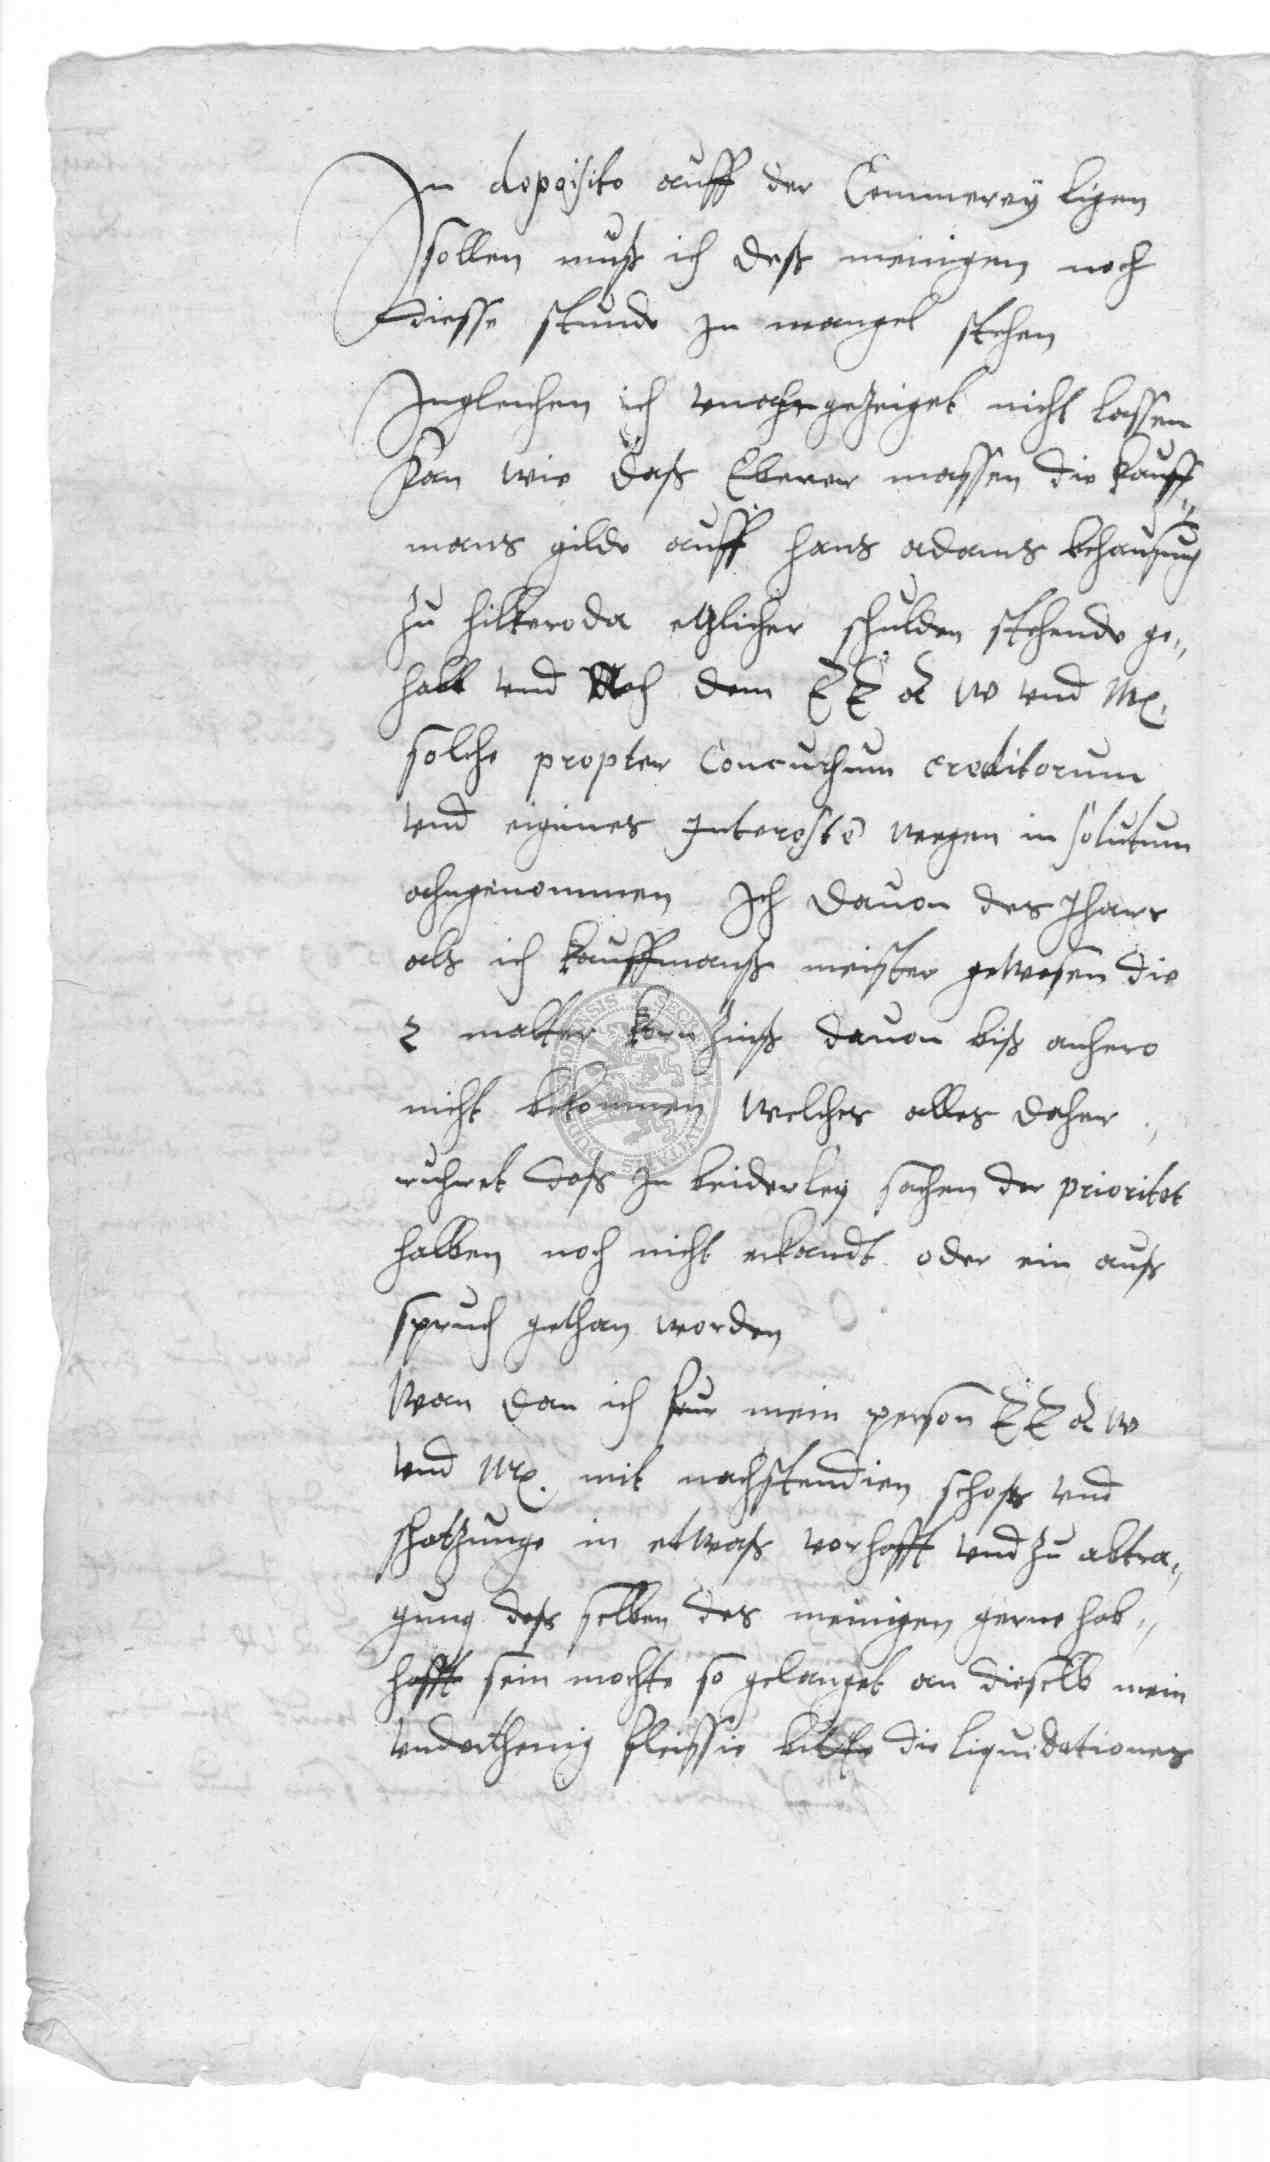 In deposito auff der Cemmerey ligen
sollen muß ich deß meinigen noch
diesse stunde in mangel stehen
Ingleichen ich unahngezeiget nicht lassen
kan wie daß Ebener massen die kauff„
mans gilde auff hans adams behausung
zu hilkeroda etzlicher schulden stehende ge„
habt und Noch dem E E A W und Mg.
solche propter Concursum creditorum
und eigenes Interesse wegen in solutum
ahngenommen Ich dauon des Jhars
als ich kauffmanß meister gewesen die
2 malter korn zinß dauon biß anhero
nicht bekommen welches alles daher„
ruhret daß in beiderley sachen der prioritet
halben noch nicht erkandt oder ein auß
spruch gethan worden
Wan dan ich fur mein person E E A W
und Mg. mit nachstendien schoß und
schatzunge in etwaß vorhafft und zu abtra„
gung deß selben des meinigen gerne hab„
hafft sein mochte so gelanget an dieselb mein
underthenig fleissie bitte die liquidationes